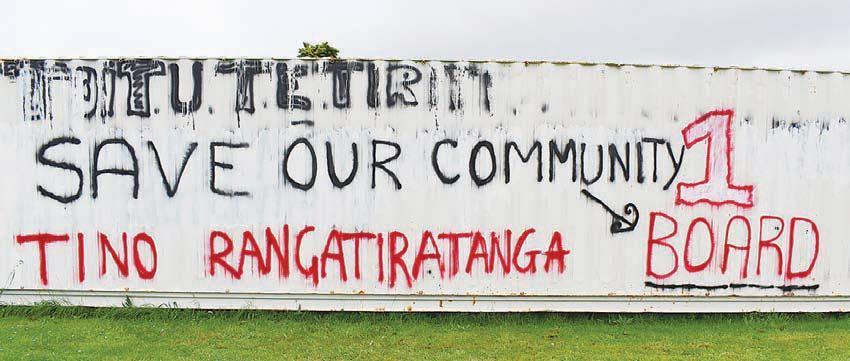 TOITU TE TIRITI
SAVE OUR COMMUNITY 1
TINO RANGATIRATANGA BOARD